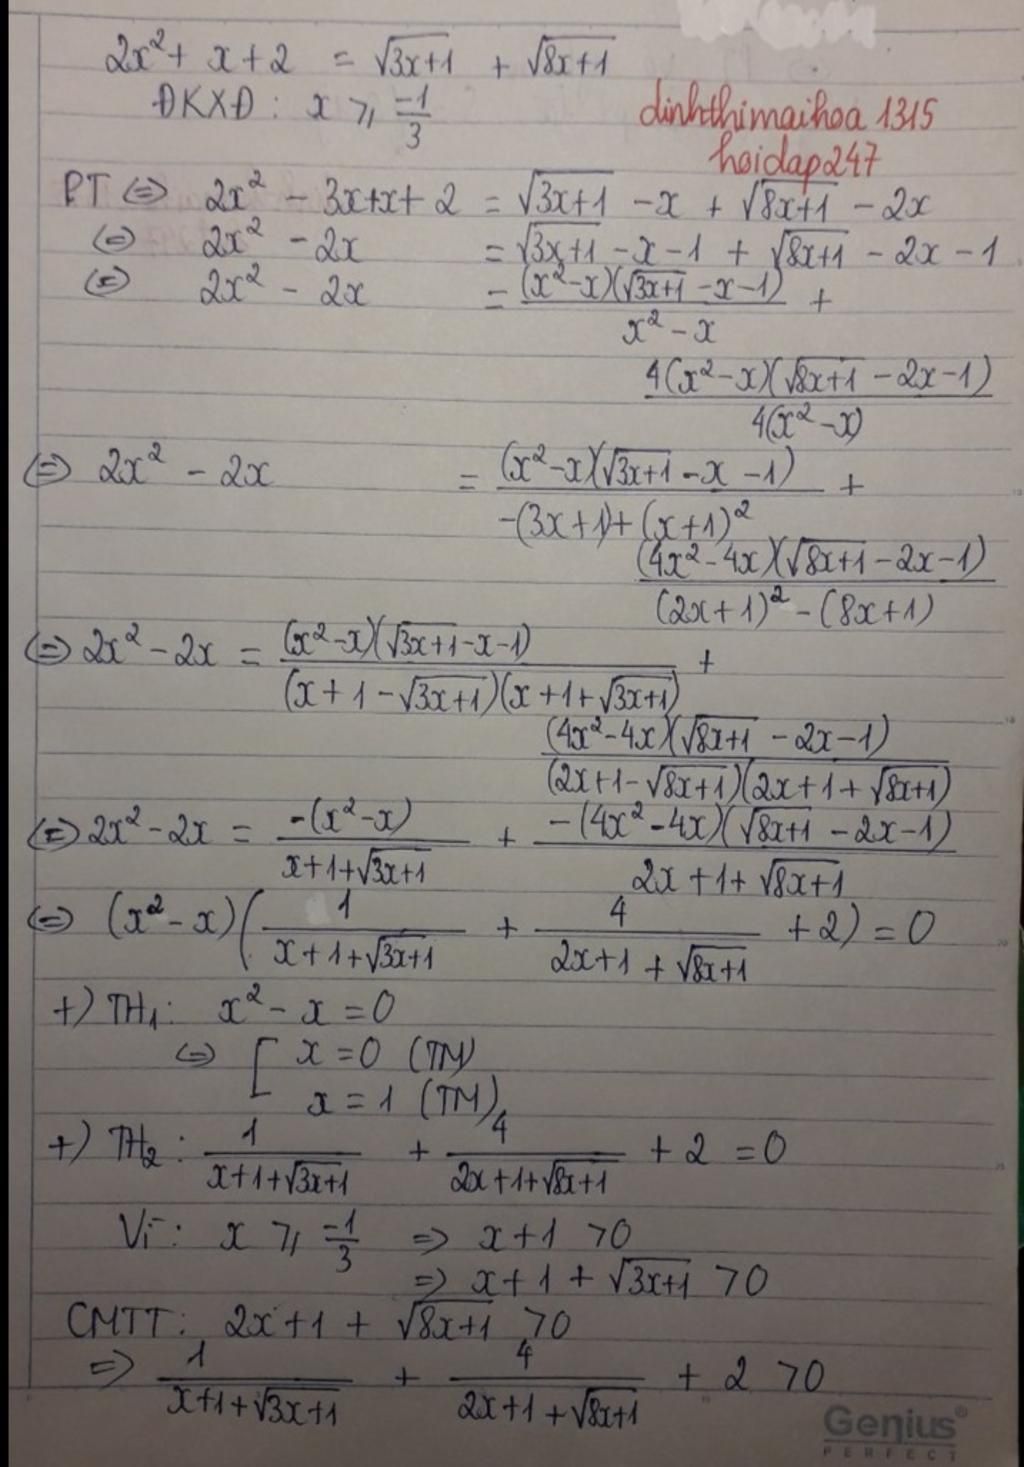 2x² + x + 2 = √(3x+1) + √(8x+1)
ĐKXĐ : x ⩾ -1/3
dinhthimaihoa 1315
hoidap247
PT ⇔ 2x² - 3x+x+ 2 = √(3x+1) - x + √(8x+1) - 2x
⇔ 2x² - 2x = √(3x+1) - x - 1 + √(8x+1) - 2x - 1
⇔ 2x² - 2x = (x²-x)(√(3x+1) - x - 1) / (x² - x) +
4(x²-x)(√(8x+1) - 2x - 1) / 4(x²-x)
⇔ 2x² - 2x = (x²-x)(√(3x+1) - x - 1) / (-(3x+1)+(x+1)²) +
(4x²-4x)(√(8x+1) - 2x - 1) / ((2x+1)² - (8x+1))
⇔ 2x² - 2x = (x²-x)(√(3x+1) - x - 1) / ((x+1-√(3x+1))(x+1+√(3x+1))) +
(4x²-4x)(√(8x+1) - 2x - 1) / ((2x+1-√(8x+1))(2x+1+√(8x+1)))
⇔ 2x² - 2x = -(x²-x) / (x+1+√(3x+1)) + -(4x²-4x)(√(8x+1) - 2x - 1) / (2x+1+√(8x+1))
⇔ (x²-x)(1/(x+1+√(3x+1)) + 4/(2x+1+√(8x+1)) + 2) = 0
+) TH₁: x² - x = 0
⇔ [ x = 0 (TM)
x = 1 (TM)
+) TH₂ : 1/(x+1+√(3x+1)) + 4/(2x+1+√(8x+1)) + 2 = 0
Vì : x ⩾ -1/3 ⇒ x+1 >0
⇒ x+1 + √(3x+1) >0
CMTT : 2x+1 + √(8x+1) >0
⇒ 1/(x+1+√(3x+1)) + 4/(2x+1+√(8x+1)) + 2 >0
Genius®
PERFECT